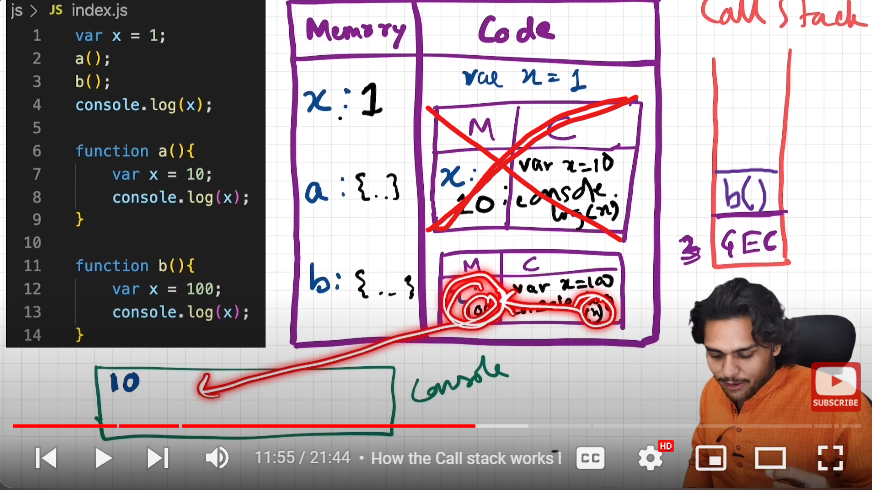 js > JS index.js
1 var x = 1;
2 a();
3 b();
4 console.log(x);
5
6 function a(){
7 var x = 10;
8 console.log(x);
9 }
10
11 function b(){
12 var x = 100;
13 console.log(x);
14 }
Memory Code
x : 1
var x = 1
M C
x: 10:
var x=10
console.
log(x)
a : {..}
b: {...}
M C
var x=100
console
(x)
Call Stack
b()
GEC
10
Console
SUBSCRIBE
11:55 / 21:44 • How the Call stack works
CC
HD